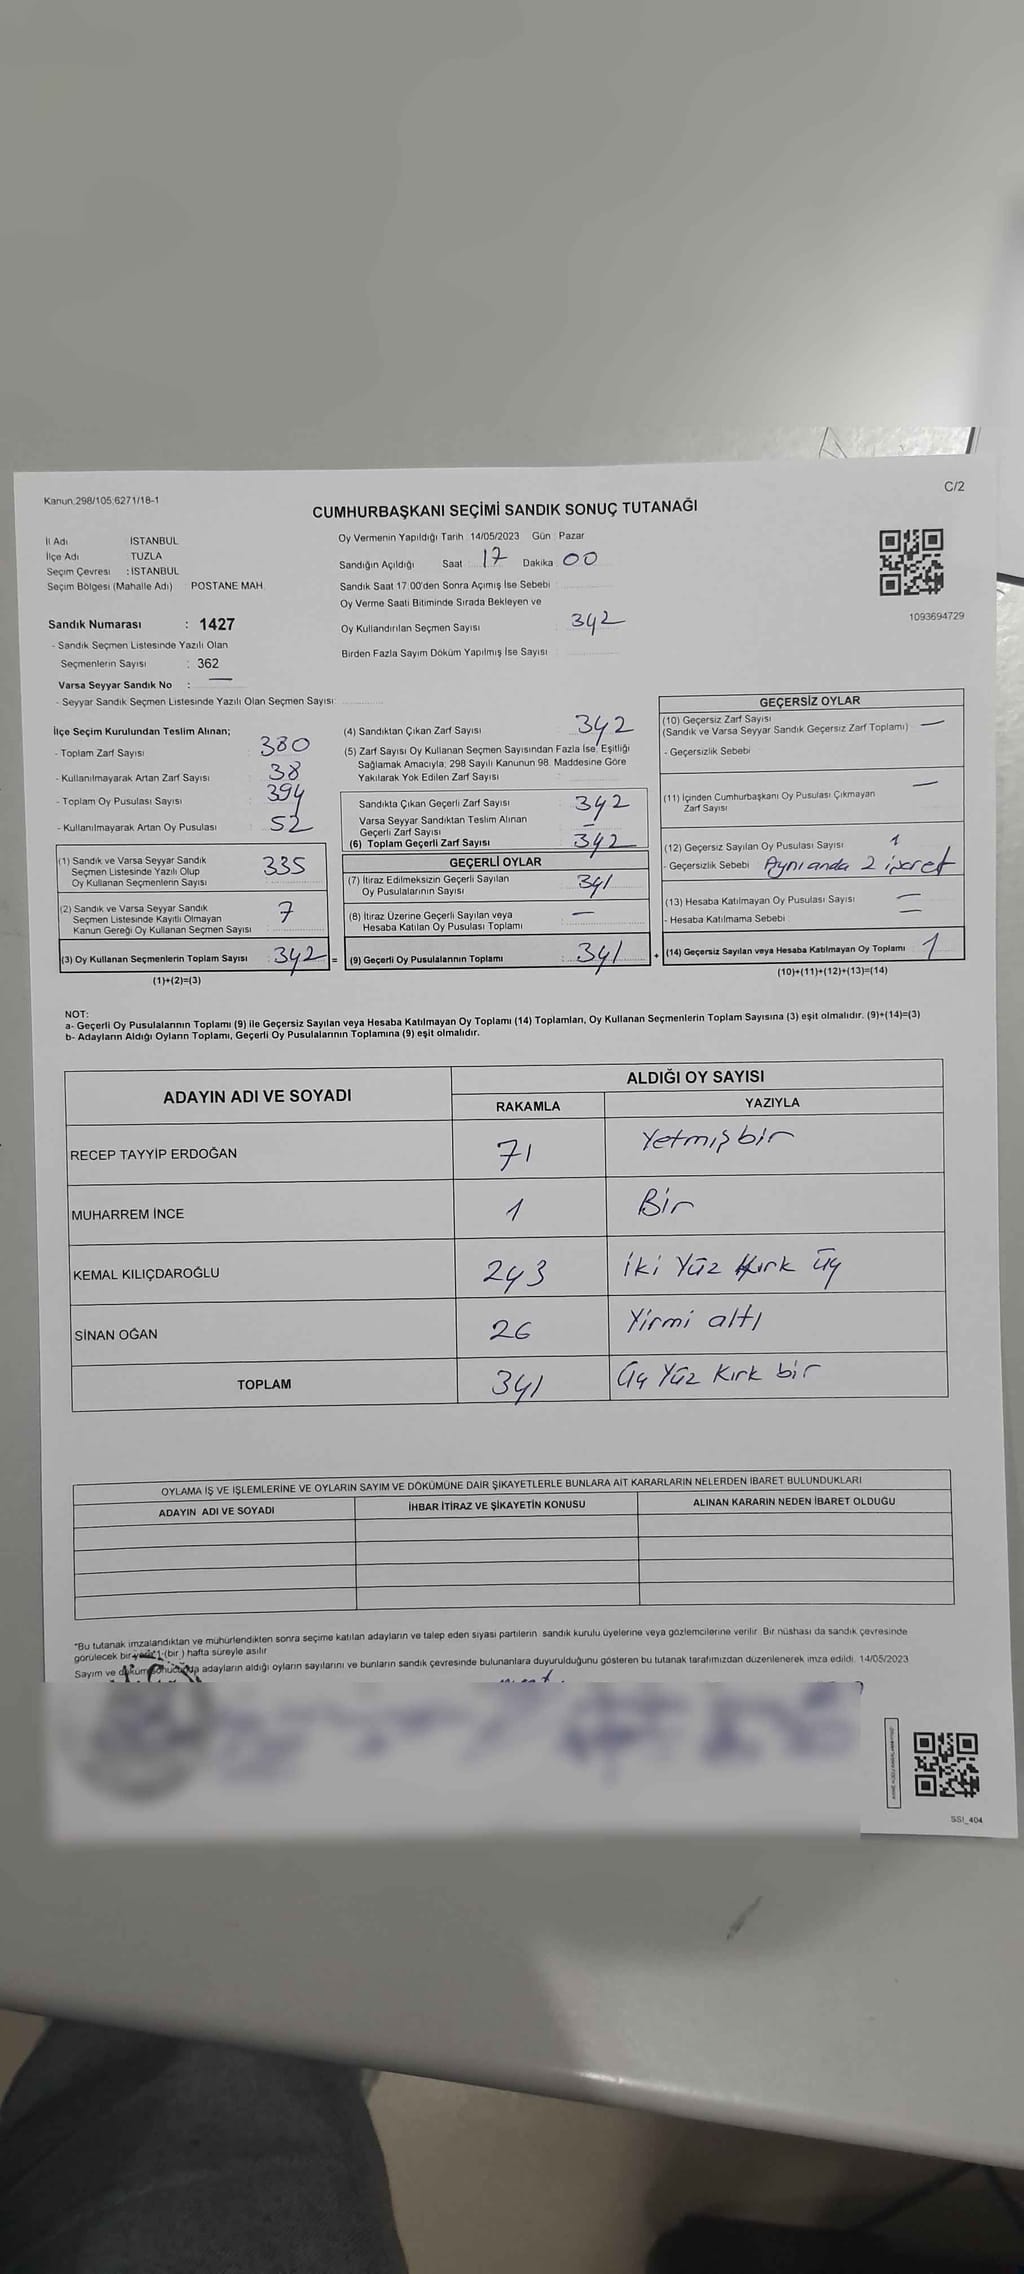 Kanun.298/105,6271/18-1
C/2
CUMHURBAŞKANI SEÇİMİ SANDIK SONUÇ TUTANAĞI
İl Adı İSTANBUL
İlçe Adı TUZLA
Seçim Çevresi : İSTANBUL
Seçim Bölgesi (Mahalle Adı) POSTANE MAH.
Sandık Numarası : 1427
- Sandık Seçmen Listesinde Yazılı Olan
Seçmenlerin Sayısı : 362
Varsa Seyyar Sandık No : —
- Seyyar Sandık Seçmen Listesinde Yazılı Olan Seçmen Sayısı:
Oy Vermenin Yapıldığı Tarih 14/05/2023 Gün Pazar
Sandığın Açıldığı Saat 17 Dakika 00
Sandık Saat 17:00'den Sonra Açımış İse Sebebi
Oy Verme Saati Bitiminde Sırada Bekleyen ve
Oy Kullandırılan Seçmen Sayısı 342
Birden Fazla Sayım Döküm Yapılmış İse Sayısı
1093694729
İlçe Seçim Kurulundan Teslim Alınan;
- Toplam Zarf Sayısı 380
- Kullanılmayarak Artan Zarf Sayısı 38
- Toplam Oy Pusulası Sayısı 394
- Kullanılmayarak Artan Oy Pusulası 52
(1) Sandık ve Varsa Seyyar Sandık
Seçmen Listesinde Yazılı Olup
Oy Kullanan Seçmenlerin Sayısı 335
(2) Sandık ve Varsa Seyyar Sandık
Seçmen Listesinde Kayıtlı Olmayan
Kanun Gereği Oy Kullanan Seçmen Sayısı 7
(3) Oy Kullanan Seçmenlerin Toplam Sayısı 342 =
(1)+(2)=(3)
(4) Sandıktan Çıkan Zarf Sayısı 342
(5) Zarf Sayısı Oy Kullanan Seçmen Sayısından Fazla İse, Eşitliği
Sağlamak Amacıyla; 298 Sayılı Kanunun 98. Maddesine Göre
Yakılarak Yok Edilen Zarf Sayısı
Sandıkta Çıkan Geçerli Zarf Sayısı 342
Varsa Seyyar Sandıktan Teslim Alınan
Geçerli Zarf Sayısı —
(6) Toplam Geçerli Zarf Sayısı 342
GEÇERLİ OYLAR
(7) İtiraz Edilmeksizin Geçerli Sayılan
Oy Pusulalarının Sayısı 341
(8) İtiraz Üzerine Geçerli Sayılan veya
Hesaba Katılan Oy Pusulası Toplamı —
(9) Geçerli Oy Pusulalarının Toplamı 341 +
GEÇERSİZ OYLAR
(10) Geçersiz Zarf Sayısı
(Sandık ve Varsa Seyyar Sandık Geçersiz Zarf Toplamı) —
- Geçersizlik Sebebi
(11) İçinden Cumhurbaşkanı Oy Pusulası Çıkmayan
Zarf Sayısı —
(12) Geçersiz Sayılan Oy Pusulası Sayısı 1
- Geçersizlik Sebebi Aynı anda 2 işaret
(13) Hesaba Katılmayan Oy Pusulası Sayısı —
- Hesaba Katılmama Sebebi —
(14) Geçersiz Sayılan veya Hesaba Katılmayan Oy Toplamı 1
(10)+(11)+(12)+(13)=(14)
NOT:
a- Geçerli Oy Pusulalarının Toplamı (9) ile Geçersiz Sayılan veya Hesaba Katılmayan Oy Toplamı (14) Toplamları, Oy Kullanan Seçmenlerin Toplam Sayısına (3) eşit olmalıdır. (9)+(14)=(3)
b- Adayların Aldığı Oyların Toplamı, Geçerli Oy Pusulalarının Toplamına (9) eşit olmalıdır.
ADAYIN ADI VE SOYADI ALDIĞI OY SAYISI
RAKAMLA YAZIYLA
RECEP TAYYİP ERDOĞAN 71 Yetmişbir
MUHARREM İNCE 1 Bir
KEMAL KILIÇDAROĞLU 243 İki Yüz Kırk Üç
SİNAN OĞAN 26 Yirmi altı
TOPLAM 341 Üç Yüz Kırk bir
OYLAMA İŞ VE İŞLEMLERİNE VE OYLARIN SAYIM VE DÖKÜMÜNE DAİR ŞİKAYETLERLE BUNLARA AİT KARARLARIN NELERDEN İBARET BULUNDUKLARI
ADAYIN ADI VE SOYADI İHBAR İTİRAZ VE ŞİKAYETİN KONUSU ALINAN KARARIN NEDEN İBARET OLDUĞU
"Bu tutanak imzalandıktan ve mühürlendikten sonra seçime katılan adayların ve talep eden siyasi partilerin sandık kurulu üyelerine veya gözlemcilerine verilir. Bir nüshası da sandık çevresinde
görülecek bir yere 1 (bir) hafta süreyle asılır
Sayım ve döküm sonucunda adayların aldığı oyların sayılarını ve bunların sandık çevresinde bulunanlara duyurulduğunu gösteren bu tutanak tarafımızdan düzenlenerek imza edildi. 14/05/2023
SSI_404